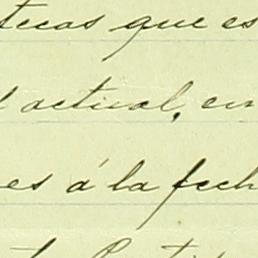 tecas que es
l actual, en
es á la fech